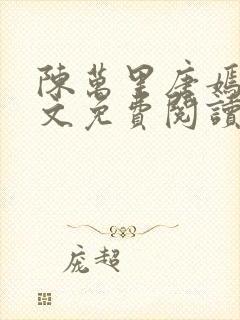 陳萬里唐嫣
文免費閱讀
庞超